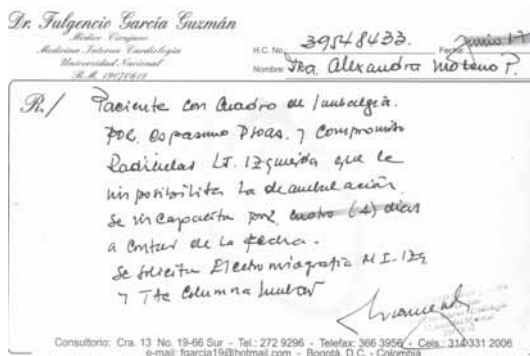 Dr. Fulgencio García Guzmán
Médico Cirujano
Medicina Interna Cardiología
Universidad Nacional
R.M. 19070612
H.C. No. 39548433. Fecha: Junio-17
Nombre: Sra. Alexandra Moreno P.
R./ Paciente con Cuadro de Lumbalgia.
por espasmo Psoas. y Compromiso
Radicular L5. Izquierda que le
imposibilita La deambulación.
Se incapacita por cuatro (4) días
a contar de La fecha.
Se solicita Electromiografía M I - Izq
y Columna Lumbar
Consultorio: Cra. 13 No. 19-66 Sur - Tel.: 272 9296 - Telefax: 366 3956 - Cels.: 314 331 2006
e-mail: fgarcia19@hotmail.com - Bogotá, D.C. - Colombia